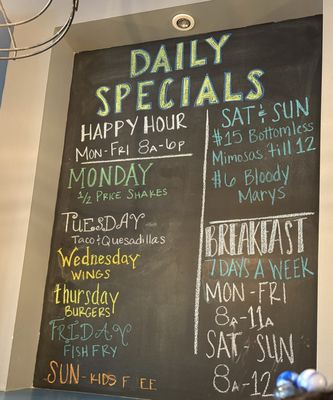 DAILY
SPECIALS
HAPPY HOUR
MON-FRI 8A-6P
MONDAY
1/2 PRICE SHAKES
TUESDAY
TACO & QUESADILLAS
Wednesday
WINGS
thursday
BURGERS
FRIDAY
FISH FRY
SUN - KIDS FREE
SAT & SUN
$15 Bottomless
Mimosas till 12
$6 Bloody
Marys
BREAKFAST
7 DAYS A WEEK
MON - FRI
8A-11A
SAT - SUN
8A-12